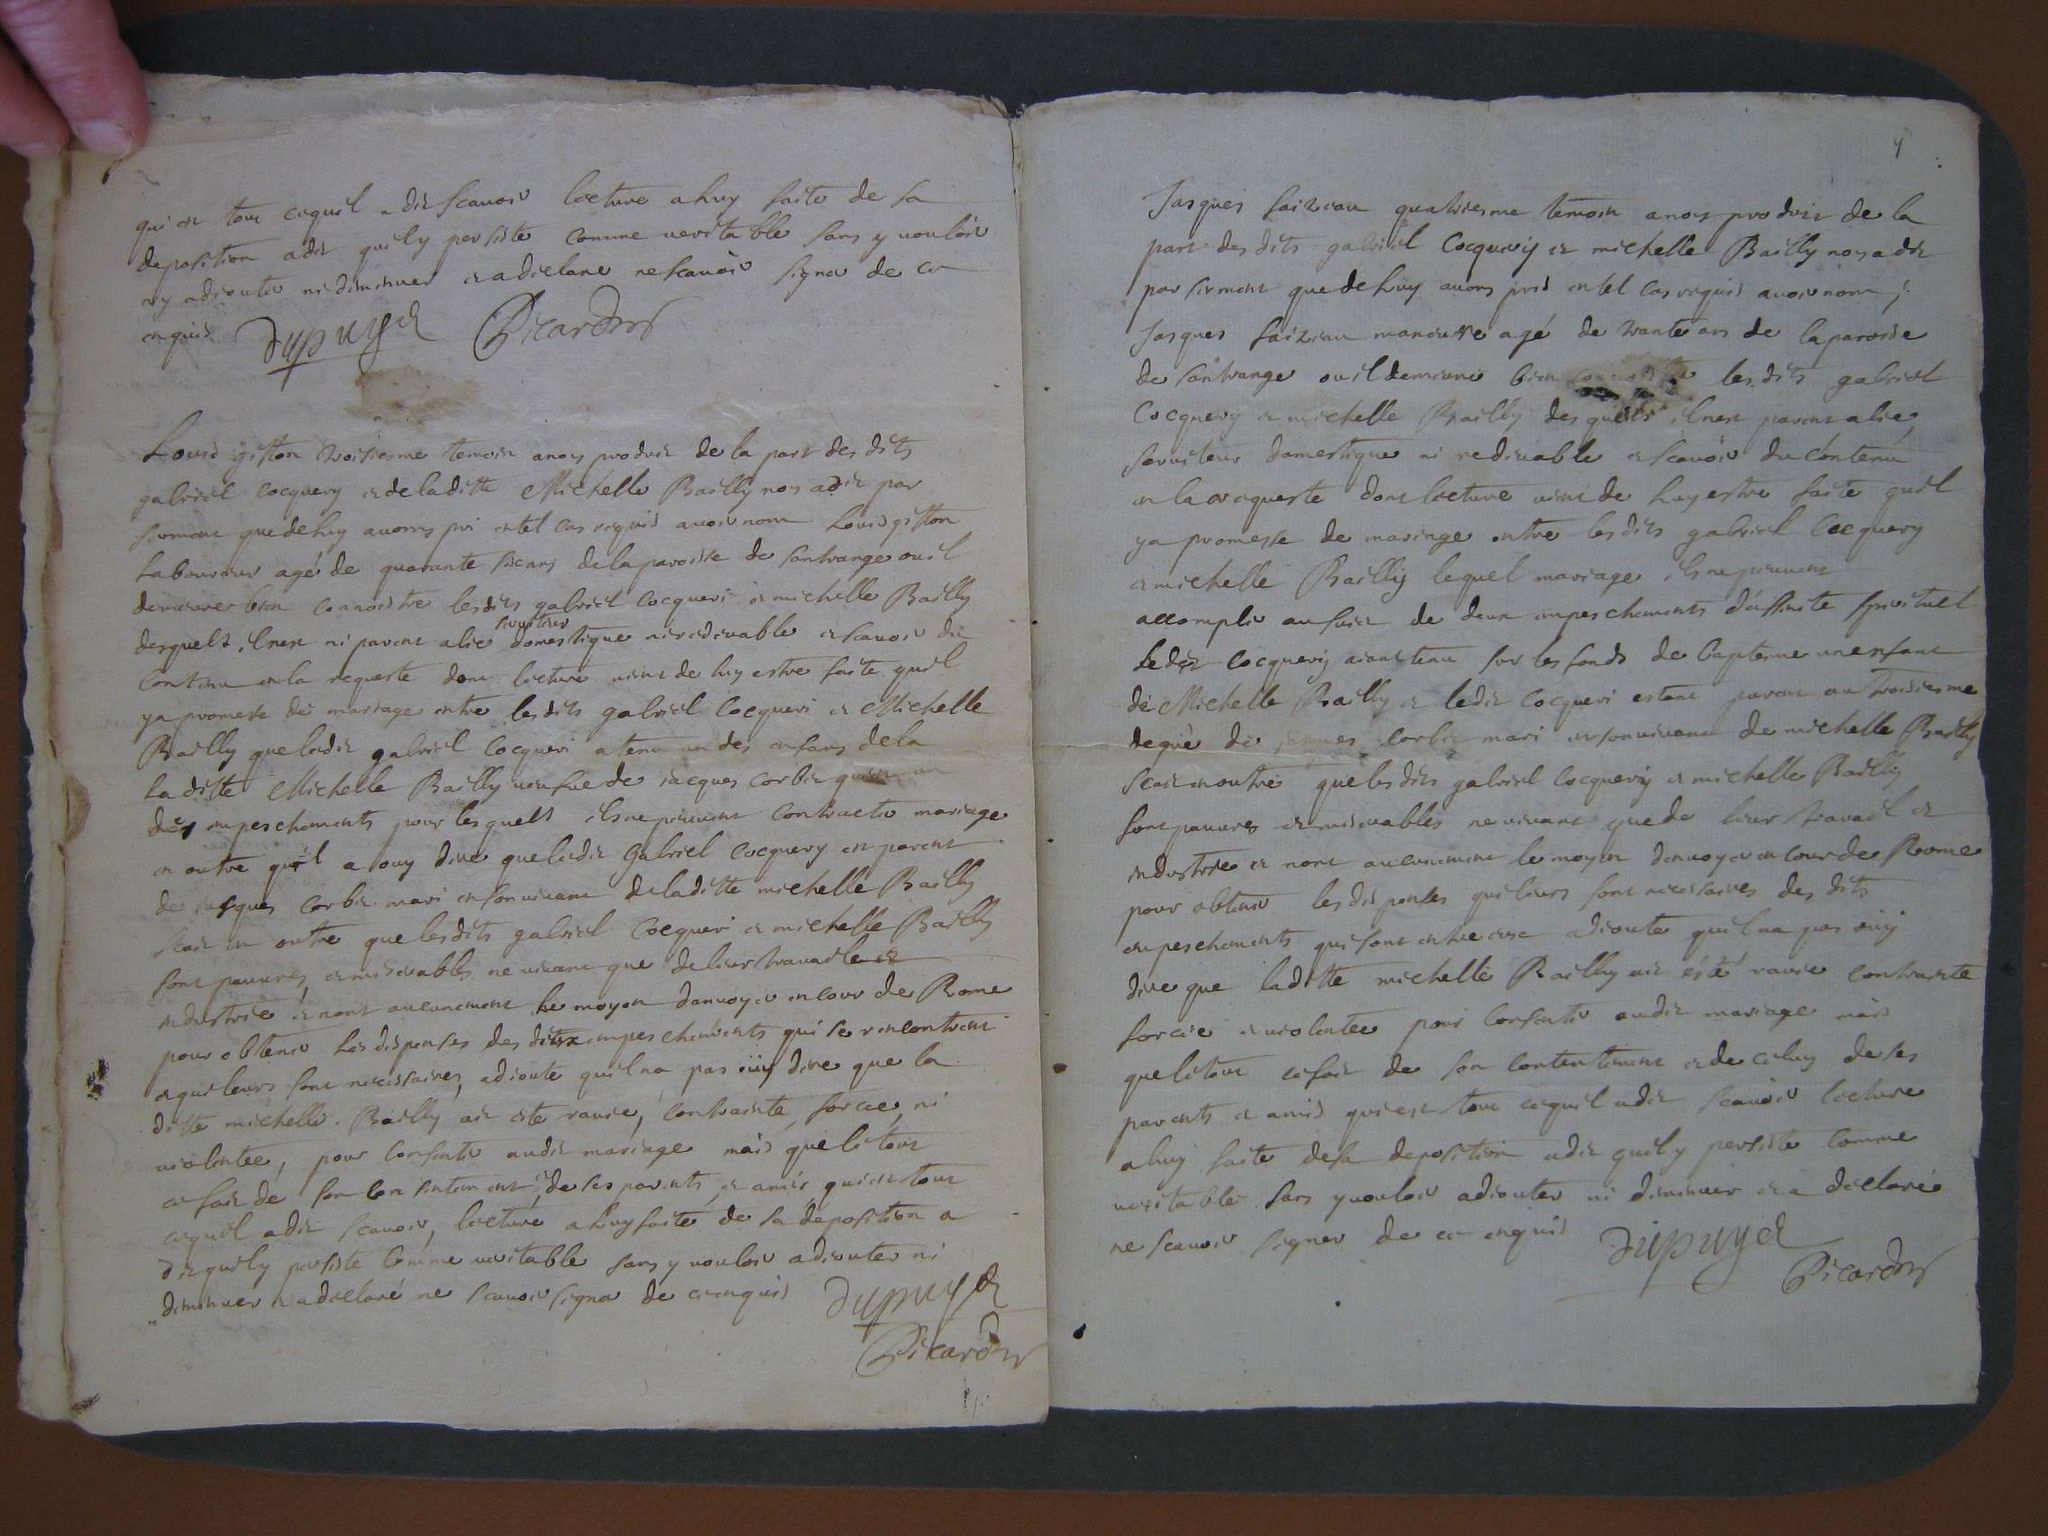 qui est tout cequil a dit scauoir lecture a luy faite de sa
deposition a dit quil y persiste comme veritable sans y vouloir
ny adiouter ni diminuer et a declare ne scauoir signer de ce
enquis Dupuyet Picardus
Louis gitton troisiesme temoin a nous produit de la part des dits
gabriel cocquery et de la ditte Michelle Bailly nous a dit par
serment que de luy auons pri en tel cas requis auoir nom Louis gitton
Laboureur agé de quarante six ans de la paroisse de santrange ou il
demeure bien connoistre les dits gabriel cocqueri et michelle Bailly
desquels il nest ni parent alie seruiteur domestique ni redeuable et scauoir du
contenu en la requeste dont lecture vient de luy estre faite quil
y a promesse de mariage entre les dits gabriel Cocqueri et Michelle
Bailly que ledit gabriel Cocqueri a tenu un des enfans de la
La ditte Michelle Bailly veufue de iacques corbit qui est un
des empeschements pour lesquels ils ne peuuent contracter mariage
en outre quil a ouy dire que ledit Gabriel cocquery est parent
de iasques corbit mari en son viuant de la ditte michelle Bailly
scait en outre que les dits gabriel Cocqueri et michelle Bailly
sont pauures et miserables ne viuant que de leur trauaile et
industrie et nont aucunement le moyen denuoyer en cour de Rome
pour obtenir les dispenses des dits empeschements qui se rencontrent
et qui leurs sont necessaires, adioute quil na pas ouy dire que la
ditte michelle Bailly ait este rauie, contrainte, forcee, ni
violentee, pour consentir audit mariage mais que le tout
ce fait de son consentement et de ses parents et amis qui est tout
cequil a dit scauoir, lecture a luy faite de sa deposition a
dit quil y persiste comme veritable sans y vouloir adiouter ni
diminuer et a declaré ne scauoir signer de ce enquis Dupuyet
Picardus
Jasques faiziau quatriesme temoin a nous produit de la
part des dits gabriel Cocquery et michelle Bailly nous a dit
par serment que de luy auons pris en tel cas requis auoir nom
Jasques faiziau manouvre agé de trante ans de la paroisse
de santrange ou il demeure bien les dits gabriel
Cocquery et michelle Bailly desquels il nest parent alie,
seruiteur domestique ni redeuable et scauoir du contenu
en la requeste dont lecture vient de luy estre faite quil
y a promesse de mariage entre les dits gabriel Cocquery
et michelle Bailly lequel mariage ils ne peuuent
accomplir au suiet de deux empeschements daffinite spirituel
Le dit Cocquery aiant tenu sur les fonds de baptesme un enfant
de Michelle Bailly et ledit Cocqueri estant parent au troisiesme
degré de iasques corbit mari en son viuant de michelle Bailly
scait en outre que les dits gabriel Cocquery et michelle Bailly
sont pauures et miserables ne viuant que de leur trauail et
industrie et nont aucunement le moyen denuoyer en cour de Rome
pour obtenir les dispenses qui leurs sont necessaires des dits
empeschements qui sont entre eux adioute quil na pas ouy
dire que laditte michelle Bailly ait esté rauie contrainte
forcee et violentee pour consentir audit mariage mais
que le tout ce fait de son contentement et de celuy de ses
parents et amis qui est tout cequil a dit scauoir lecture
a luy faite de sa deposition a dit quil y persiste comme
veritable sans y vouloir adiouter ni diminuer et a declaré
ne scauoir signer de ce enquis Dupuyet
Picardus